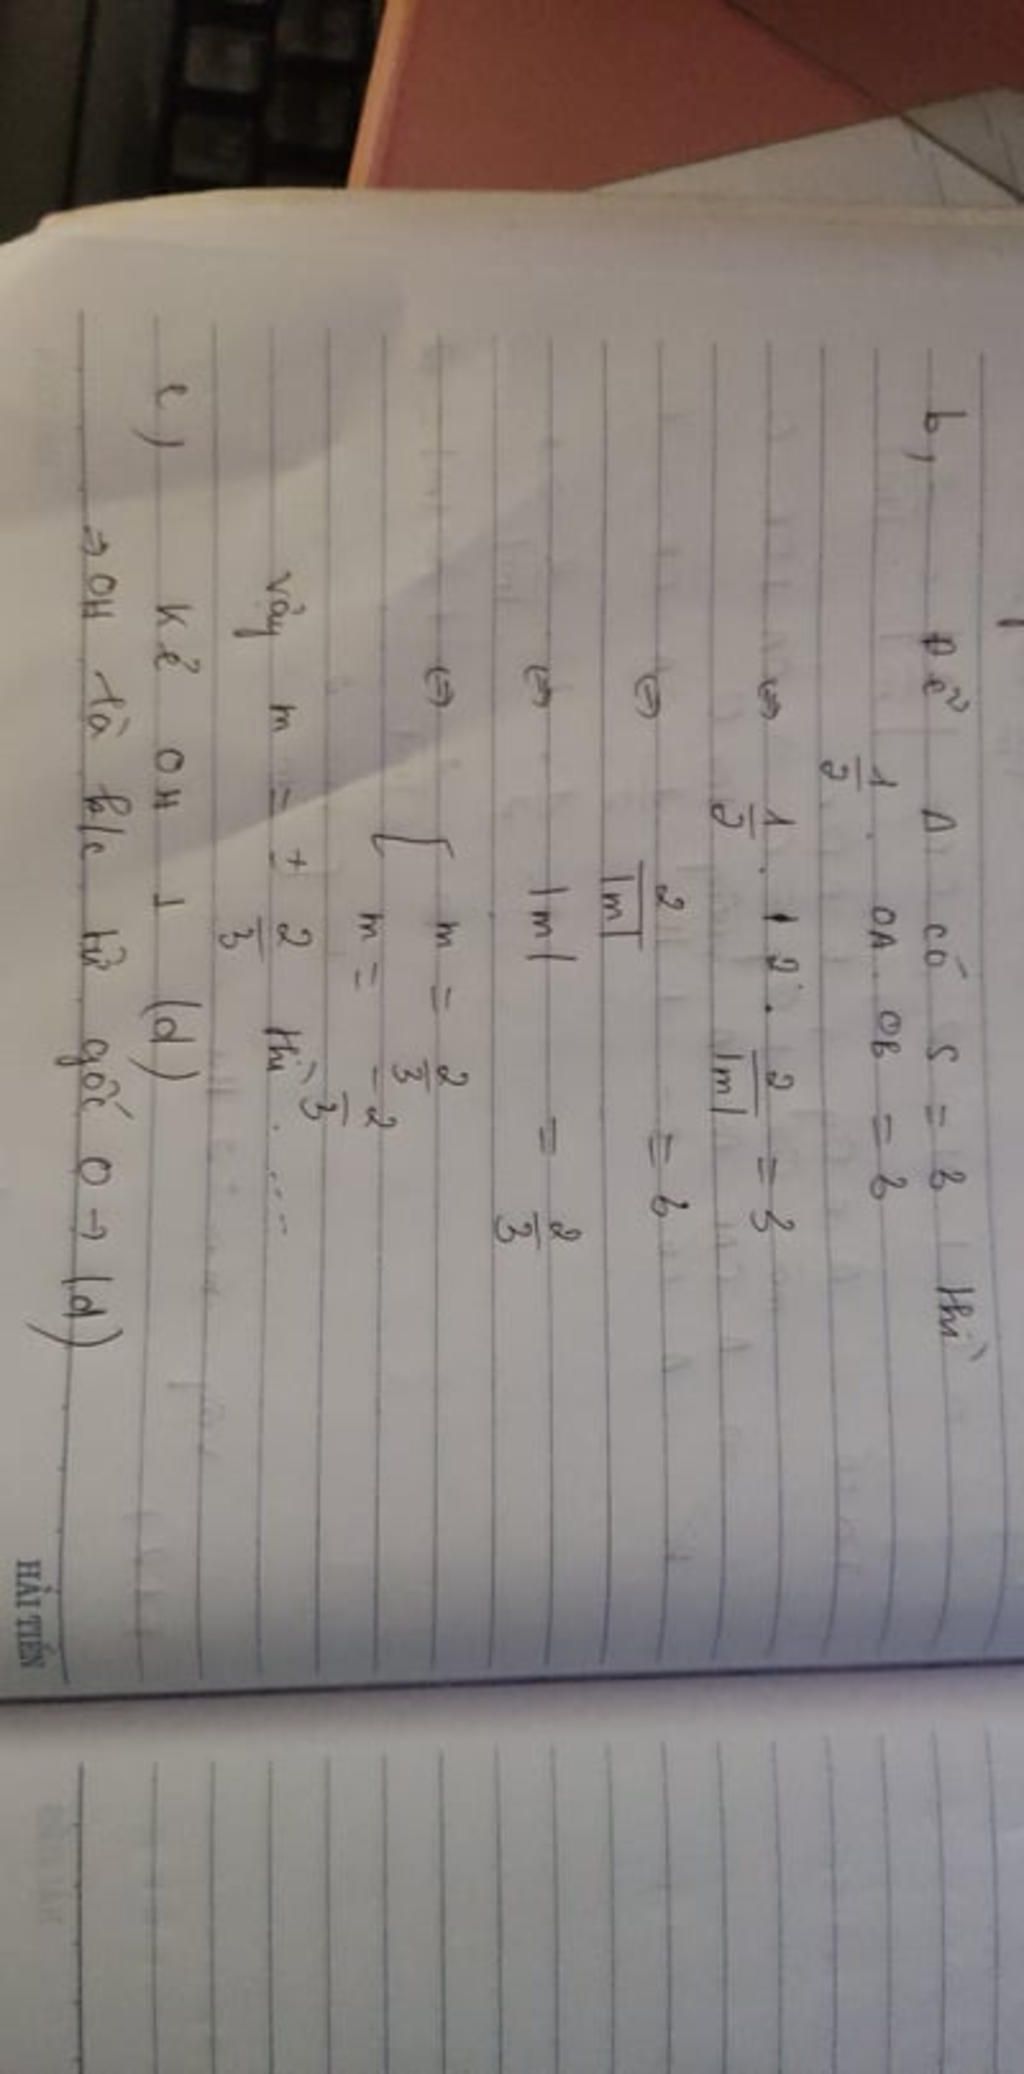 b, Để Δ có S = 3 thì
1/2 . OA . OB = 3
⇔ 1/2 . 2 . 2/|m| = 3
⇔ 2/|m| = 3
⇔ |m| = 2/3
⇔ [ m = 2/3
m = -2/3
vậy m = ± 2/3 thì ....
c, Kẻ OH ⊥ (d)
⇒ OH là k/c từ gốc O → (d)
HẢI TIẾN